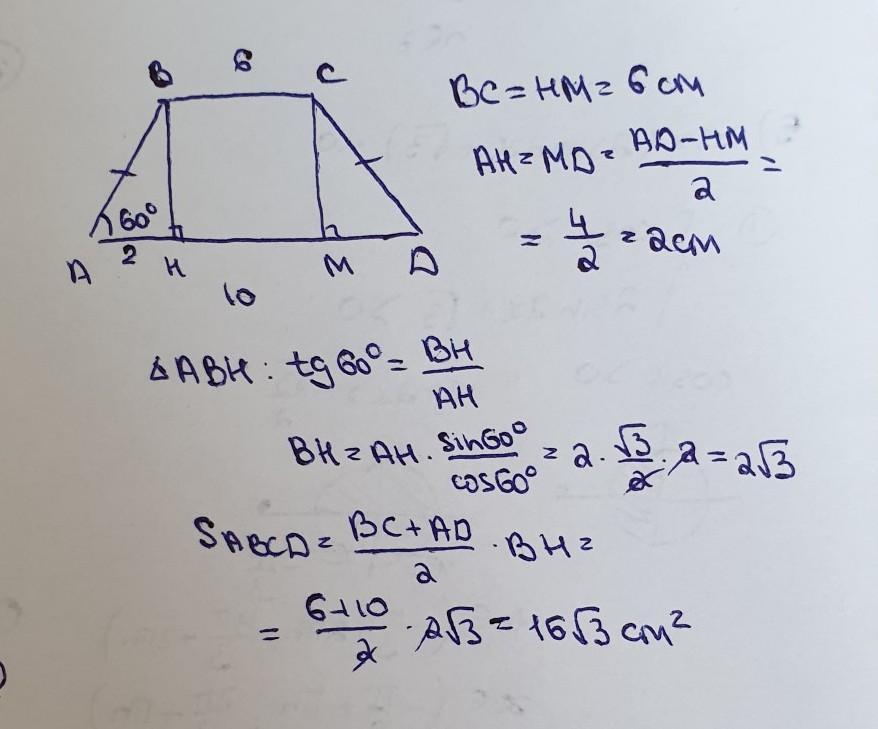 B 6 C
60°
A 2 H M D
10
BC = HM = 6 см
AH = MD = (AD - HM)/2 =
= 4/2 = 2 см
△ABH: tg 60° = BH/AH
BH = AH · sin60°/cos60° = 2 · √3/2 · 2 = 2√3
SABCD = (BC + AD)/2 · BH =
= (6+10)/2 · 2√3 = 16√3 см²